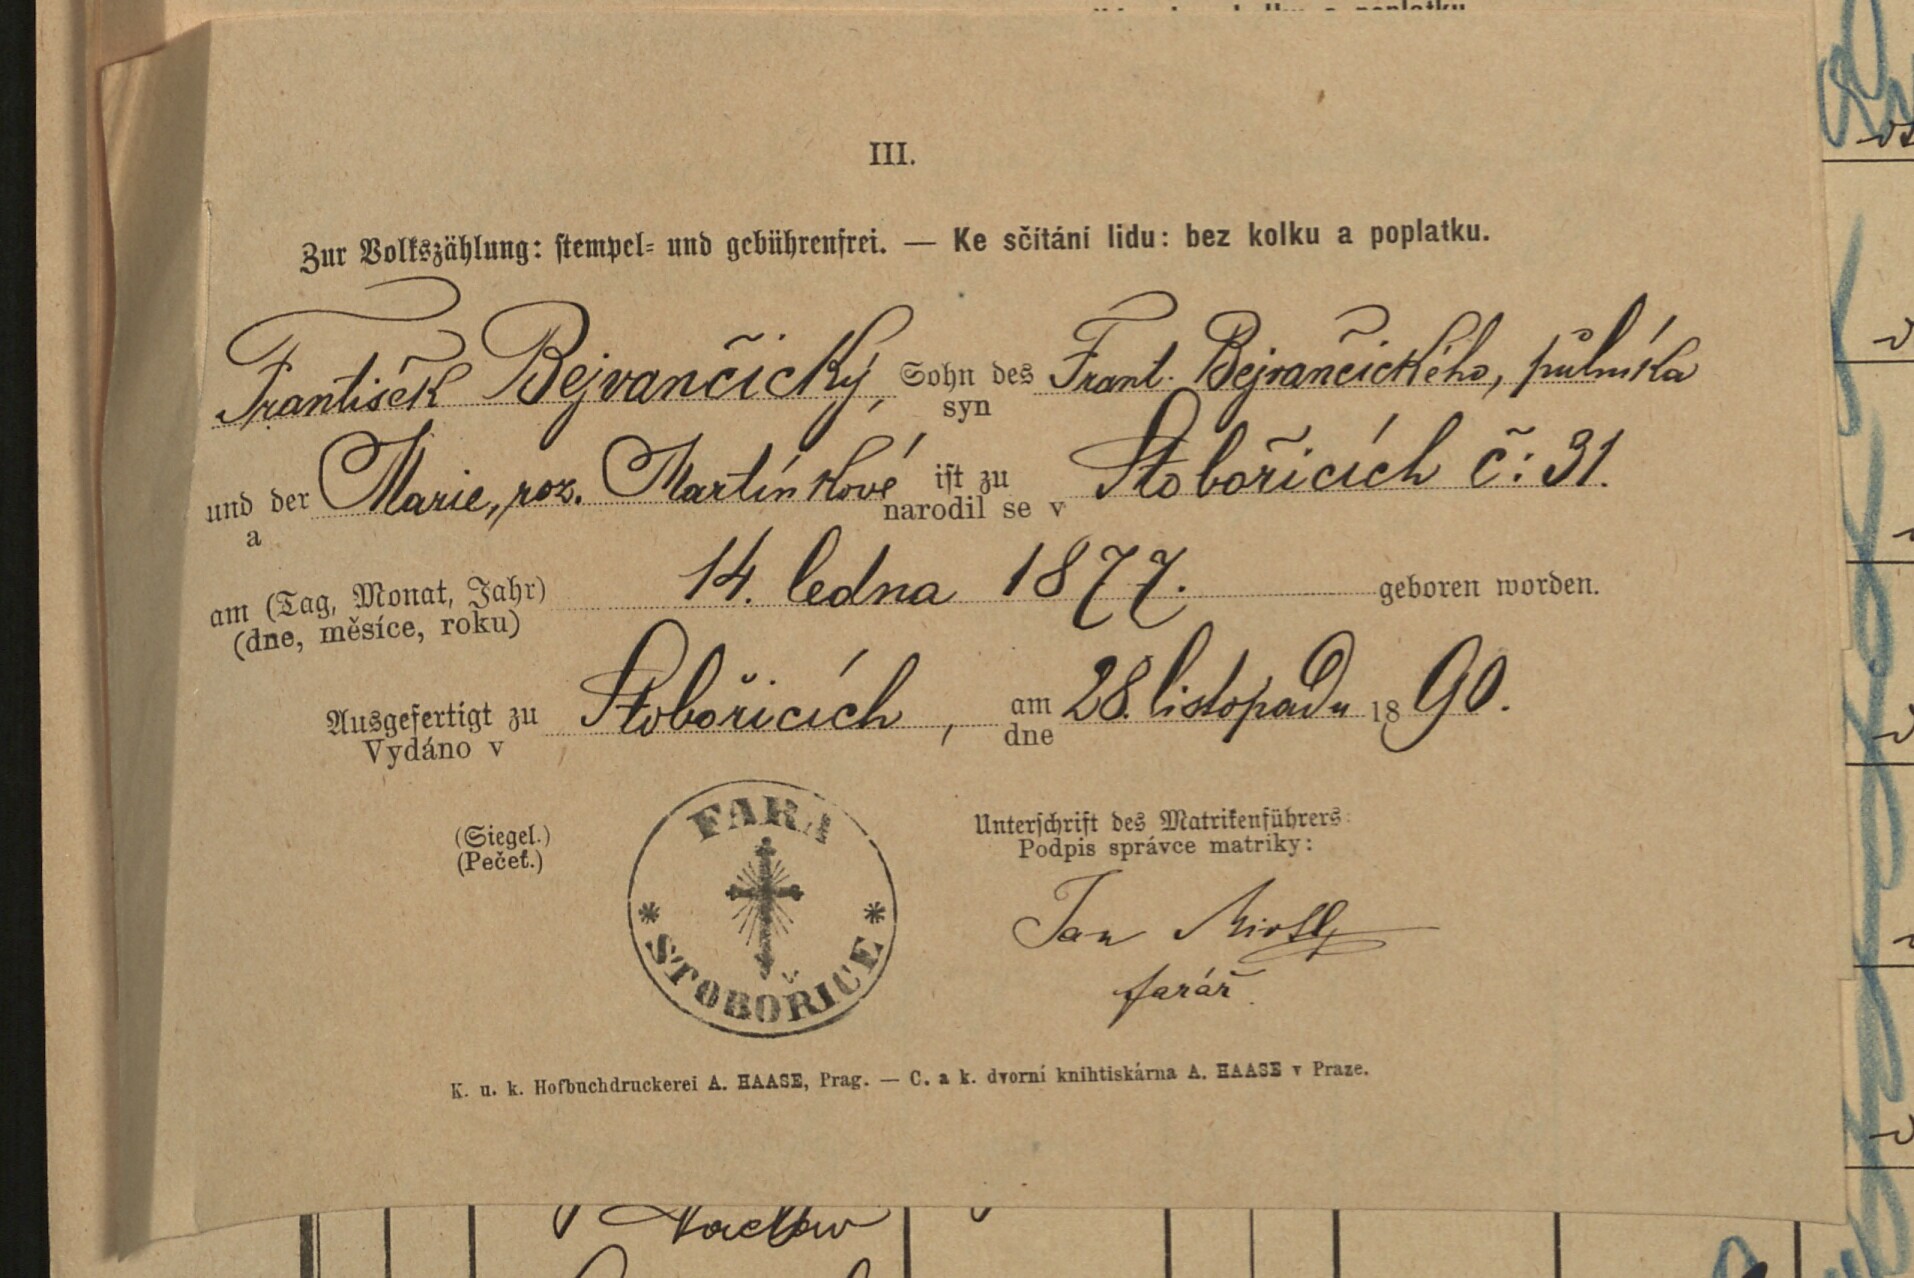 III.
Zur Volkszählung: stempel= und gebührenfrei. — Ke sčítání lidu: bez kolku a poplatku.
František Bejvančický, Sohn des Frant. Bejvančického, půlníka
syn
und der Marie, roz. Martínkové ist zu Stobořicích č: 31.
a narodil se v
am (Tag, Monat, Jahr) 14. ledna 1877. geboren worden.
(dne, měsíce, roku)
Ausgefertigt zu Stobořicích, am 28. listopadu 1890.
Vydáno v dne
(Siegel.) Unterschrift des Matrikenführers:
(Pečeť.) Podpis správce matriky:
FARA
* STOBOŘICE *
Jan
farář.
K. u. k. Hofbuchdruckerei A. HAASE, Prag. — C. a k. dvorní knihtiskárna A. HAASE v Praze.